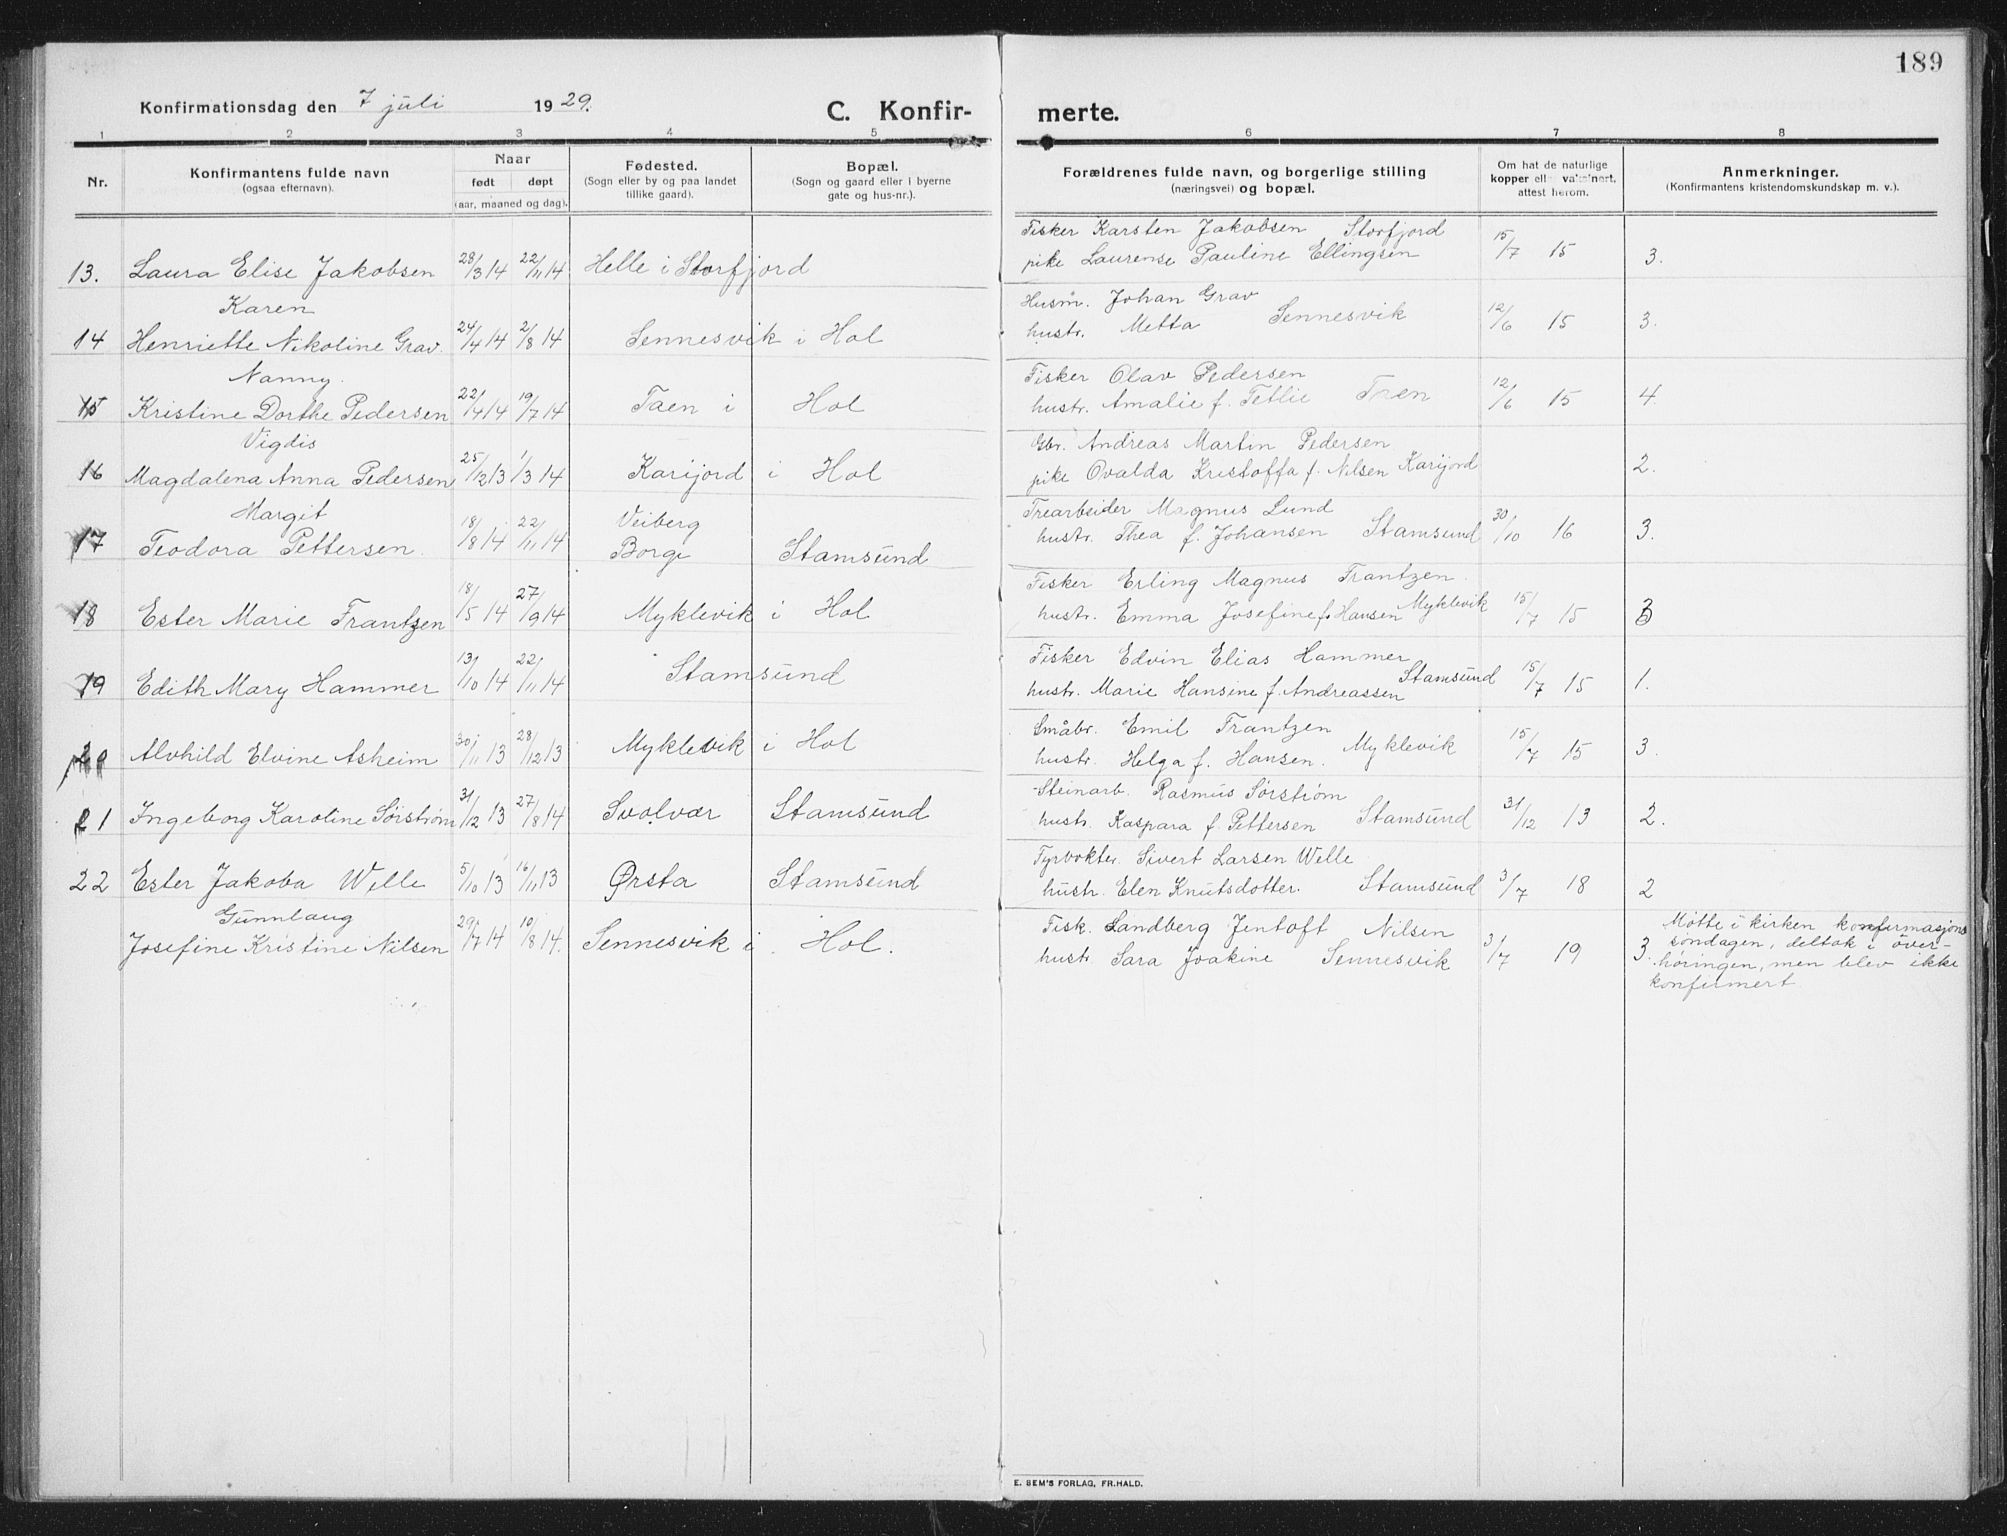 189
Konfirmationsdag den 7 juli 1929.
C. Konfir- merte.
1 2 3 4 5 6 7 8
Nr.
Konfirmantens fulde navn
(ogsaa efternavn).
Naar
født døpt
(aar, maaned og dag).
Fødested.
(Sogn eller by og paa landet
tillike gaard).
Bopæl.
(Sogn og gaard eller i byerne
gate og hus-nr.).
Forældrenes fulde navn, og borgerlige stilling
(næringsvei) og bopæl.
Om hat de naturlige
kopper
attest herom.
Anmerkninger.
(Konfirmantens kristendomskundskap m. v.).
Fisker Karsten Jakobsen Storfjord
13. Laura Elise Jakobsen 28/3 14 22/11 14 Helle i Storfjord pike Laurense Pauline Ellingsen 15/7 15 3.
Karen Husm. Johan Grav
14 Henriette Nikoline Grav. 24/4 14 2/8 14 Sennesvik i Hol hustr. Metta Sennesvik 12/6 15 3.
Nanny. Fisker Olav Pedersen
15 Kristine Dorthe Pedersen 22/4 14 19/7 14 Taen i Hol hustr. Amalie f. Tetlie Taen 12/6 15 4.
Vigdis Gbr. Andreas Martin Pedersen
16 Magdalena Anna Pedersen 25/12 13 1/3 14 Karijord i Hol pike Ovalda Kristoffa f. Nilsen Karijord 2.
Margit Veiberg Trearbeider Magnus Lund
17 Teodora Pettersen. 18/8 14 22/11 14 Borge Stamsund hustr. Thea f. Johansen Stamsund 30/10 16 3.
Fisker Erling Magnus Frantzen.
18 Ester Marie Frantzen 18/5 14 27/9 14 Myklevik i Hol hustr. Emma Josefine f. Hansen Myklevik 15/7 15 3
Fisker Edvin Elias Hammer
19 Edith Mary Hammer 13/10 14 22/11 14 Stamsund hustr. Marie Hansine f. Andreassen Stamsund 15/7 15 1.
Småbr. Emil Frantzen
20 Alvhild Elvine Asheim 30/11 13 28/12 13 Myklevik i Hol hustr. Helga f. Hansen. Myklevik 15/7 15 3.
Steinarb. Rasmus Sørstrøm
21 Ingeborg Karoline Sørstrøm 31/12 13 27/8 14 Svolvær Stamsund hustr. Kaspara f. Pettersen Stamsund 31/12 13 2.
Fyrvokter. Sivert Larsen Welle
22 Ester Jakoba Welle 5/10 13 16/11 13 Ørsta Stamsund hustr. Elen Knutsdotter. Stamsund 3/7 18 2
Gunnlaug Fisk. Landberg Jentoft Nilsen
Josefine Kristine Nilsen 29/7 14 10/8 14. Sennesvik i Hol. hustr. Sara Joakine Sennesvik 3/7 19 3.
Møtte i kirken konfirmasjons
søndagen, deltok i over-
høringen, men blev ikke
konfirmert
E. SEM'S FORLAG, FR.HALD.